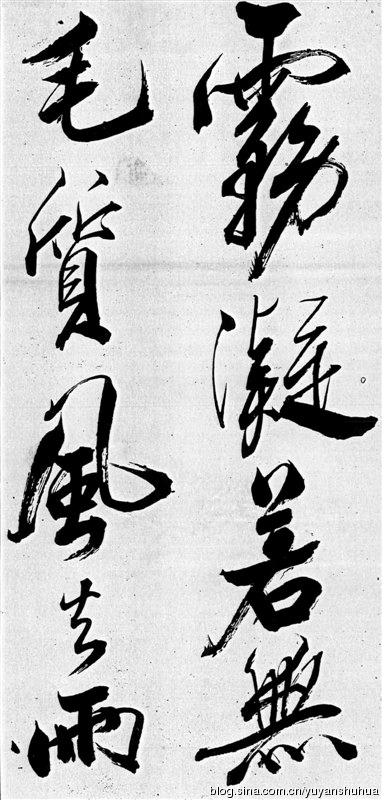 霧凝若無
毛質風去雨
blog.sina.com.cn/yuyanshuhua